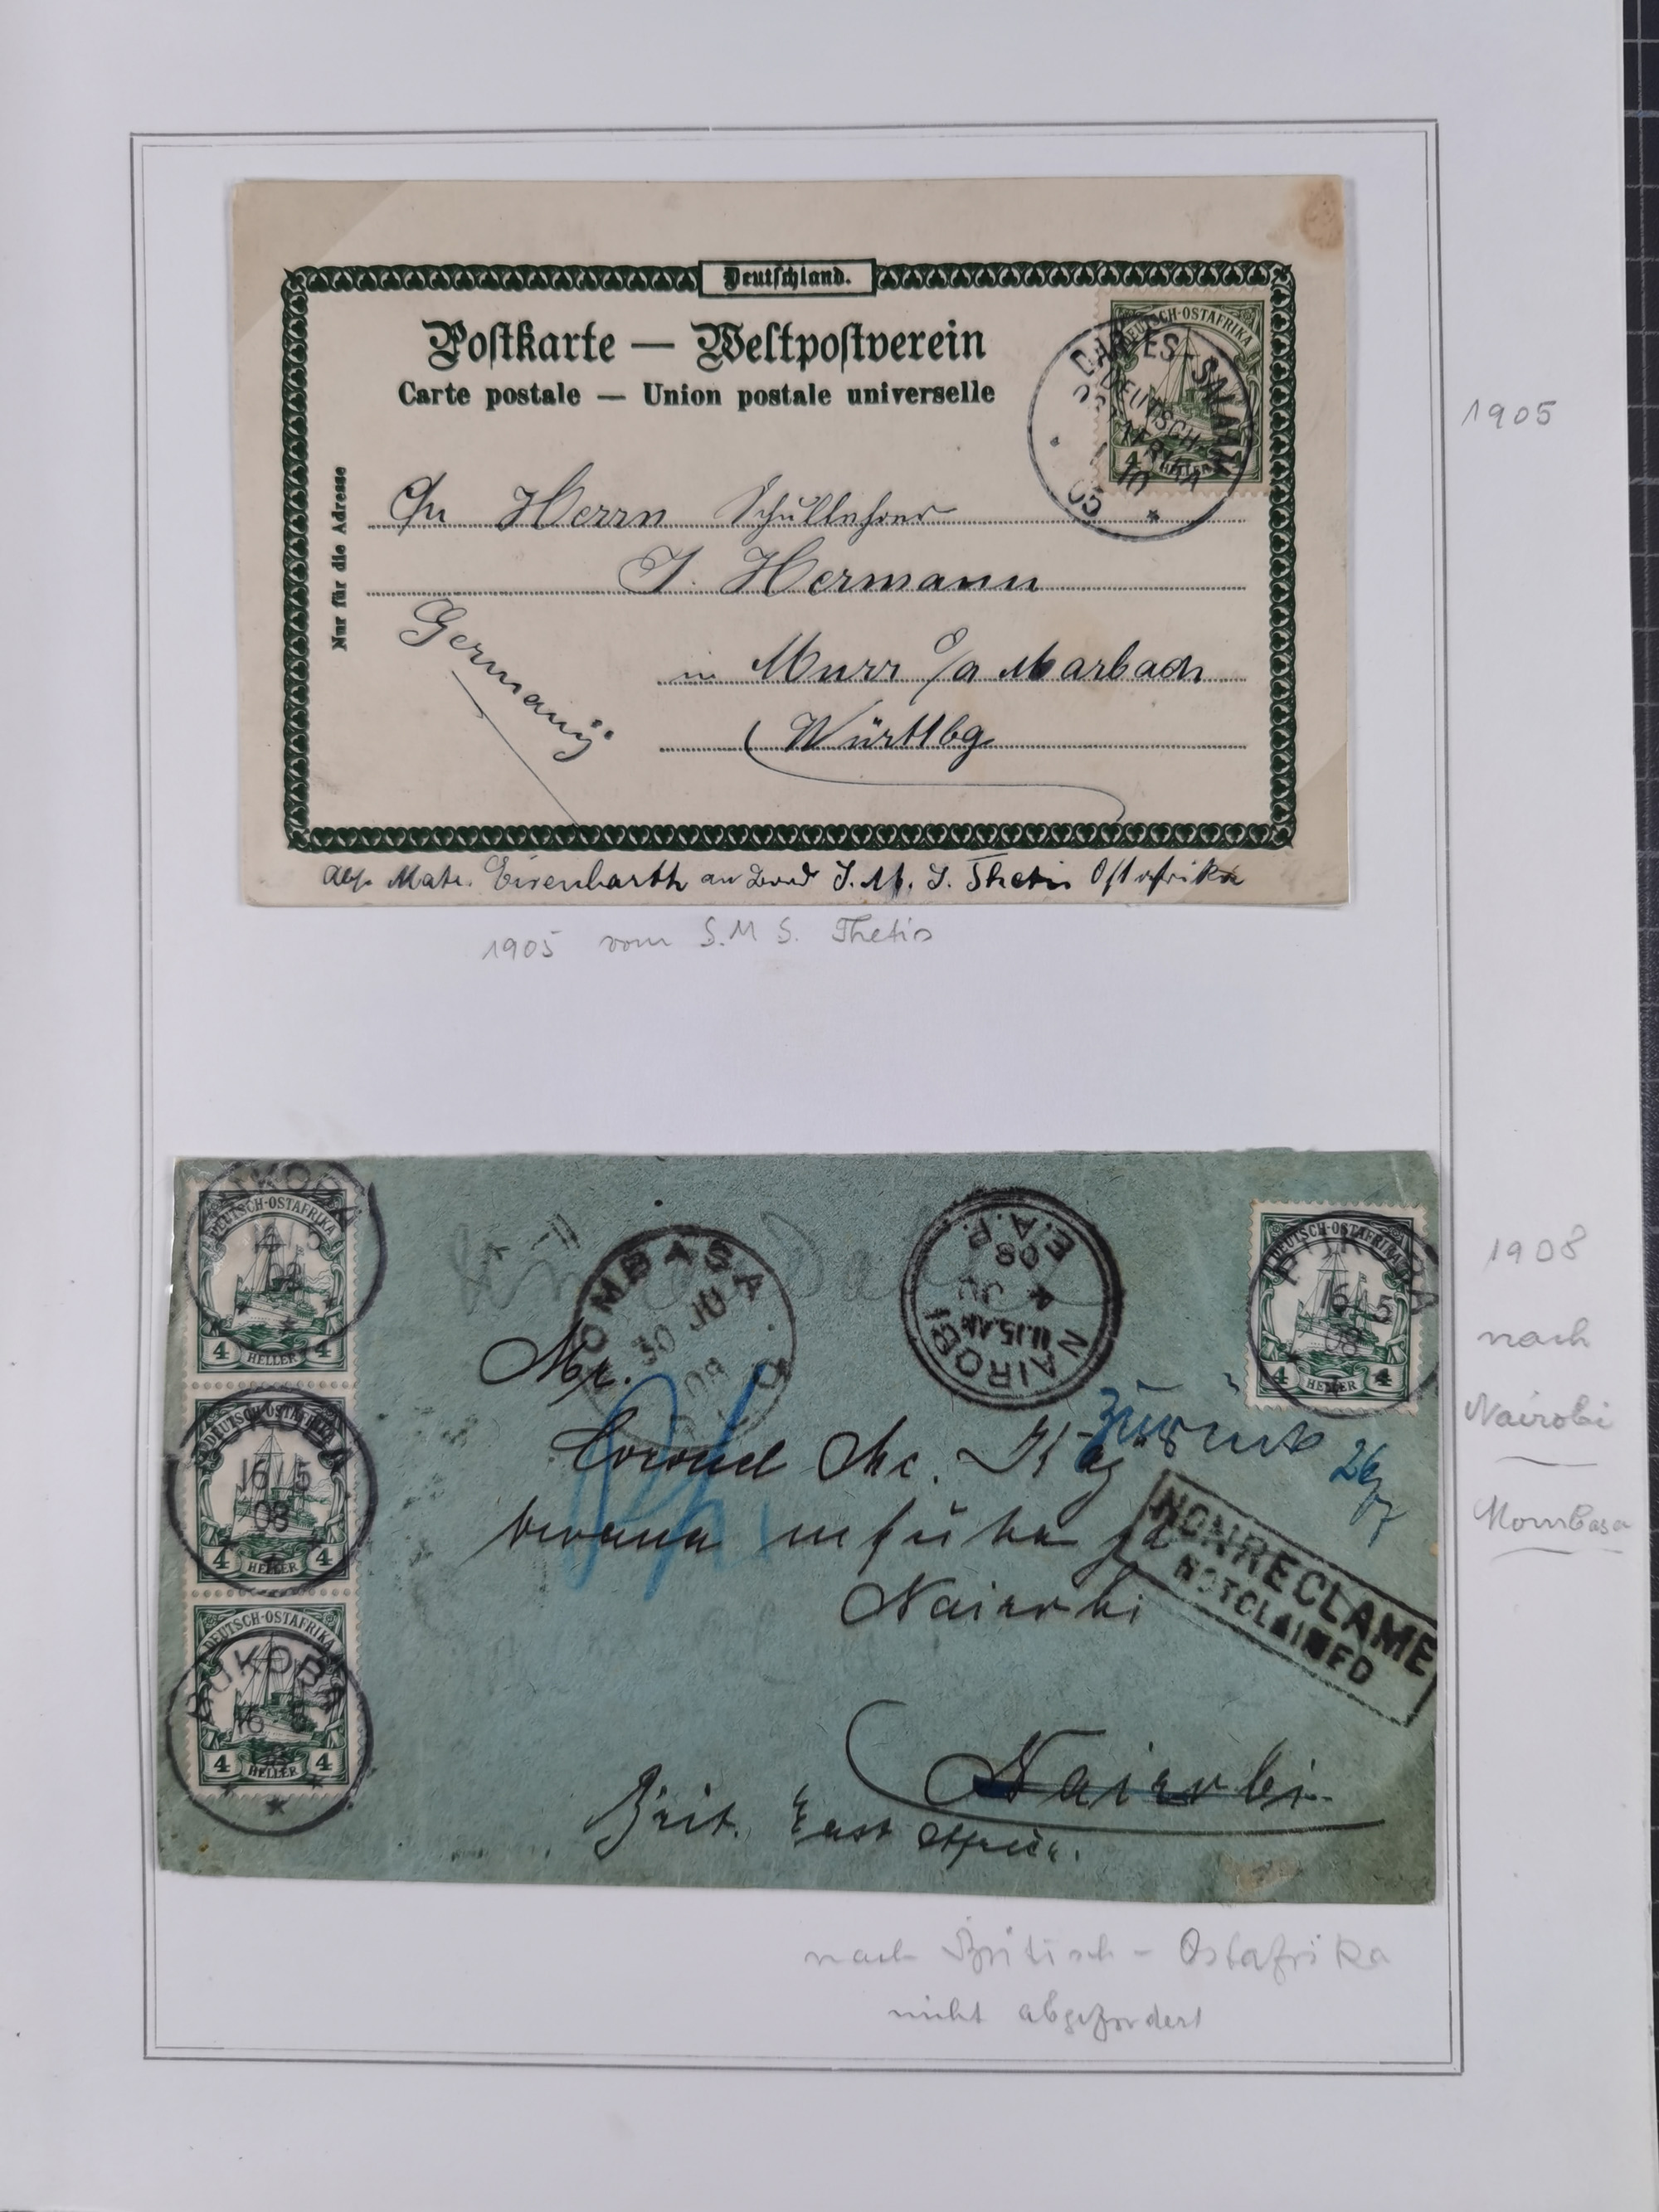 Deutschland.
Postkarte — Weltpostverein
Carte postale — Union postale universelle
Nur für die Adresse
DEUTSCH-OSTAFRIKA
4 HELLER
DAR-ES-SALAAM
DEUTSCH-
AFRIKA
10
05
An Herrn Schullehrer
J. Hermann
Germany
in Murr a/a Marbach
Württbg
Abs. Matr. Eisenbarth an Bord S.M.S. Thetis Ostafrika
1905 vom S.M.S. Thetis
1905
DEUTSCH-OSTAFRIKA
4 HELLER 4
DEUTSCH-OSTAFRIKA
16 5
08
4 HELLER 4
DEUTSCH-OSTAFRIKA
BUKOBA
16
4 HELLER 4
MOMBASA
30 JU
08
NAIROBI
11.15 AM
4 JU
08
E.A.P.
DEUTSCH-OSTAFRIKA
16 5
08
4 HELLER 4
Mr.
Zurück
26/7
NONRECLAME
NOTCLAIMED
Nairobi
Nairobi
Brit. East Africa.
1908
nach
Nairobi
Mombasa
nach Britisch-Ostafrika
nicht abgefordert